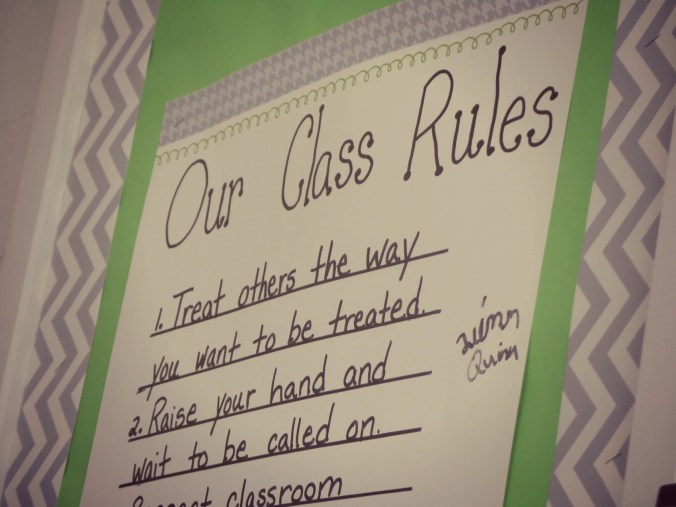 Our Class Rules
1. Treat others the way
you want to be treated.
2. Raise your hand and
wait to be called on.
classroom
Quinn